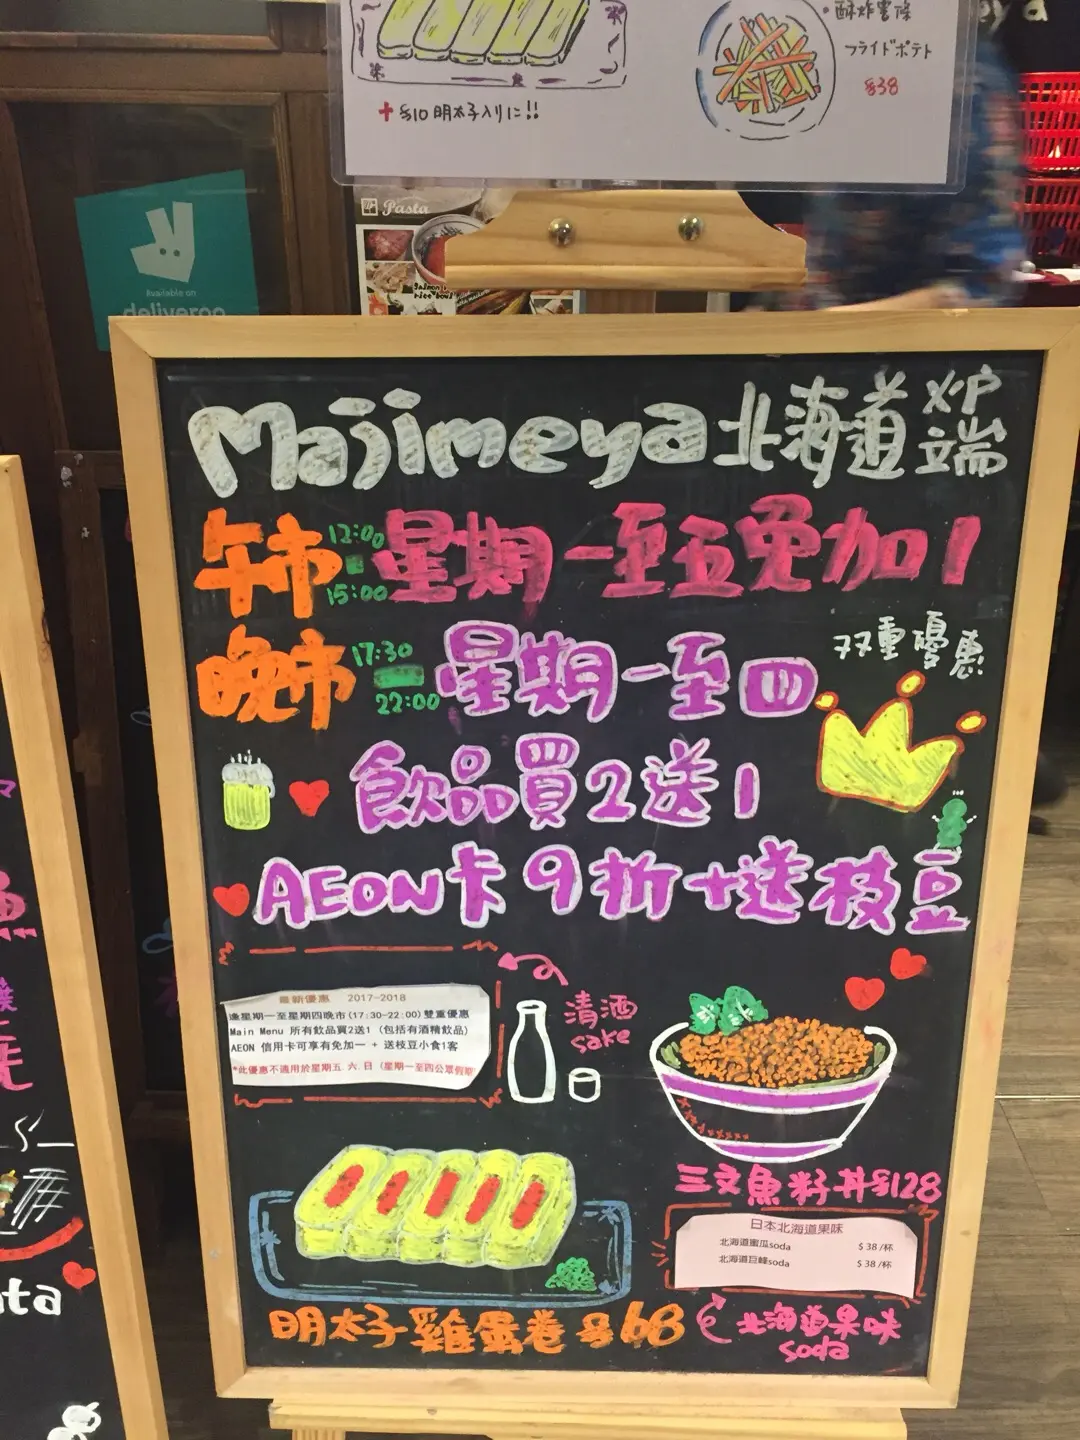 酥炸薯條
フライドポテト
$38
+ $10 明太子入りに!!
Pasta
Available on
deliveroo
Majimeya 北海道 炉端
午市 12:00-15:00 星期一至五免加1
晚市 17:30-22:00 星期一至四
双重優惠
飲品買2送1
AEON卡 9折+送枝豆
最新優惠 2017-2018
逢星期一至星期四晚市(17:30-22:00)雙重優惠
Main Menu 所有飲品買2送1 (包括有酒精飲品)
AEON 信用卡可享有免加一 + 送枝豆小食1客
*此優惠不適用於星期五.六.日 (星期一至四公眾假期
清酒
sake
三文魚籽丼$128
日本北海道果味
北海道蜜瓜soda $38/杯
北海道巨蜂soda $38/杯
明太子雞蛋卷 $68
北海道果味
soda